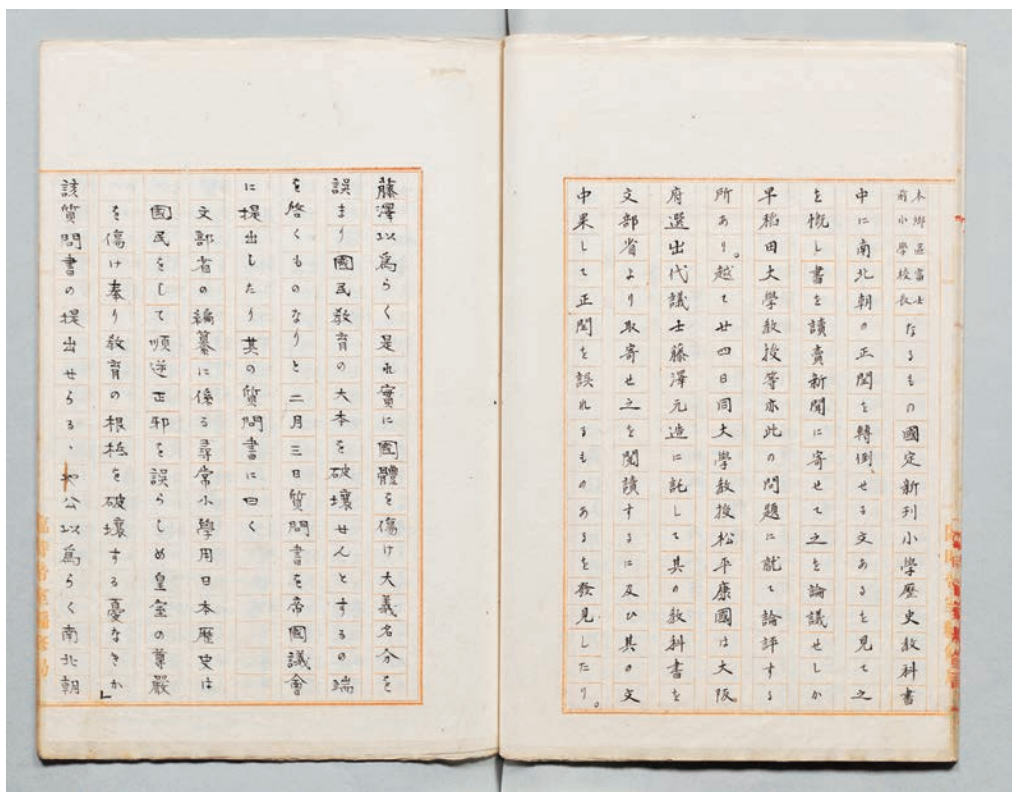 本郷區富士
前小學校長
なるもの國定新刊小學歷史教科書
中に南北朝の正閏を轉倒、せる文あるを見て之
を慨し書を讀賣新聞に寄せて之を論議せしか
早稻田大學教授等亦此の問題に就て論評する
所あり。越て廿四日同大學教授松平康國は大阪
府選出代議士藤澤元造に託して其の教科書を
文部省より取寄せ之を閲讀するに及ひ其の文
中果して正閏を誤れるものあるを發見したり。
藤澤以爲らく是れ實に國體を傷け大義名分を
誤まり國民教育の大本を破壞せんとするの端
を啓くものなりと二月三日質問書を帝國議會
に提出したり其の質問書に曰く
文部省の編纂に係る尋常小學用日本歷史は
國民をして順逆正邪を誤らしめ皇室の尊嚴
を傷け奉り教育の根柢を破壞する憂なきか」
該質問書の提出せらるゝや公以爲らく南北朝